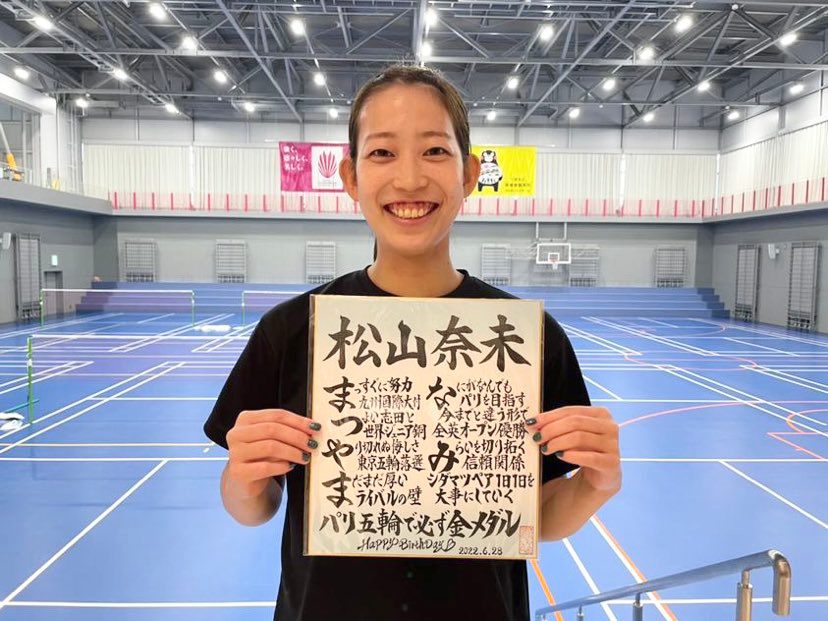 強く、
美しく。
松山奈未
まっすぐに努力
九州国際大付
つよい志田と
世界ジュニア銅
やり切れぬ悔しさ
東京五輪落選
まだまだ厚い
ライバルの壁
なにがなんでも
パリを目指す
今までと違う形で
全英オープン優勝
みらいを切り拓く
信頼関係
シダマツペア1日1日を
大事にしていく
パリ五輪で必ず金メダル
Happy BirthDay
2022.6.28